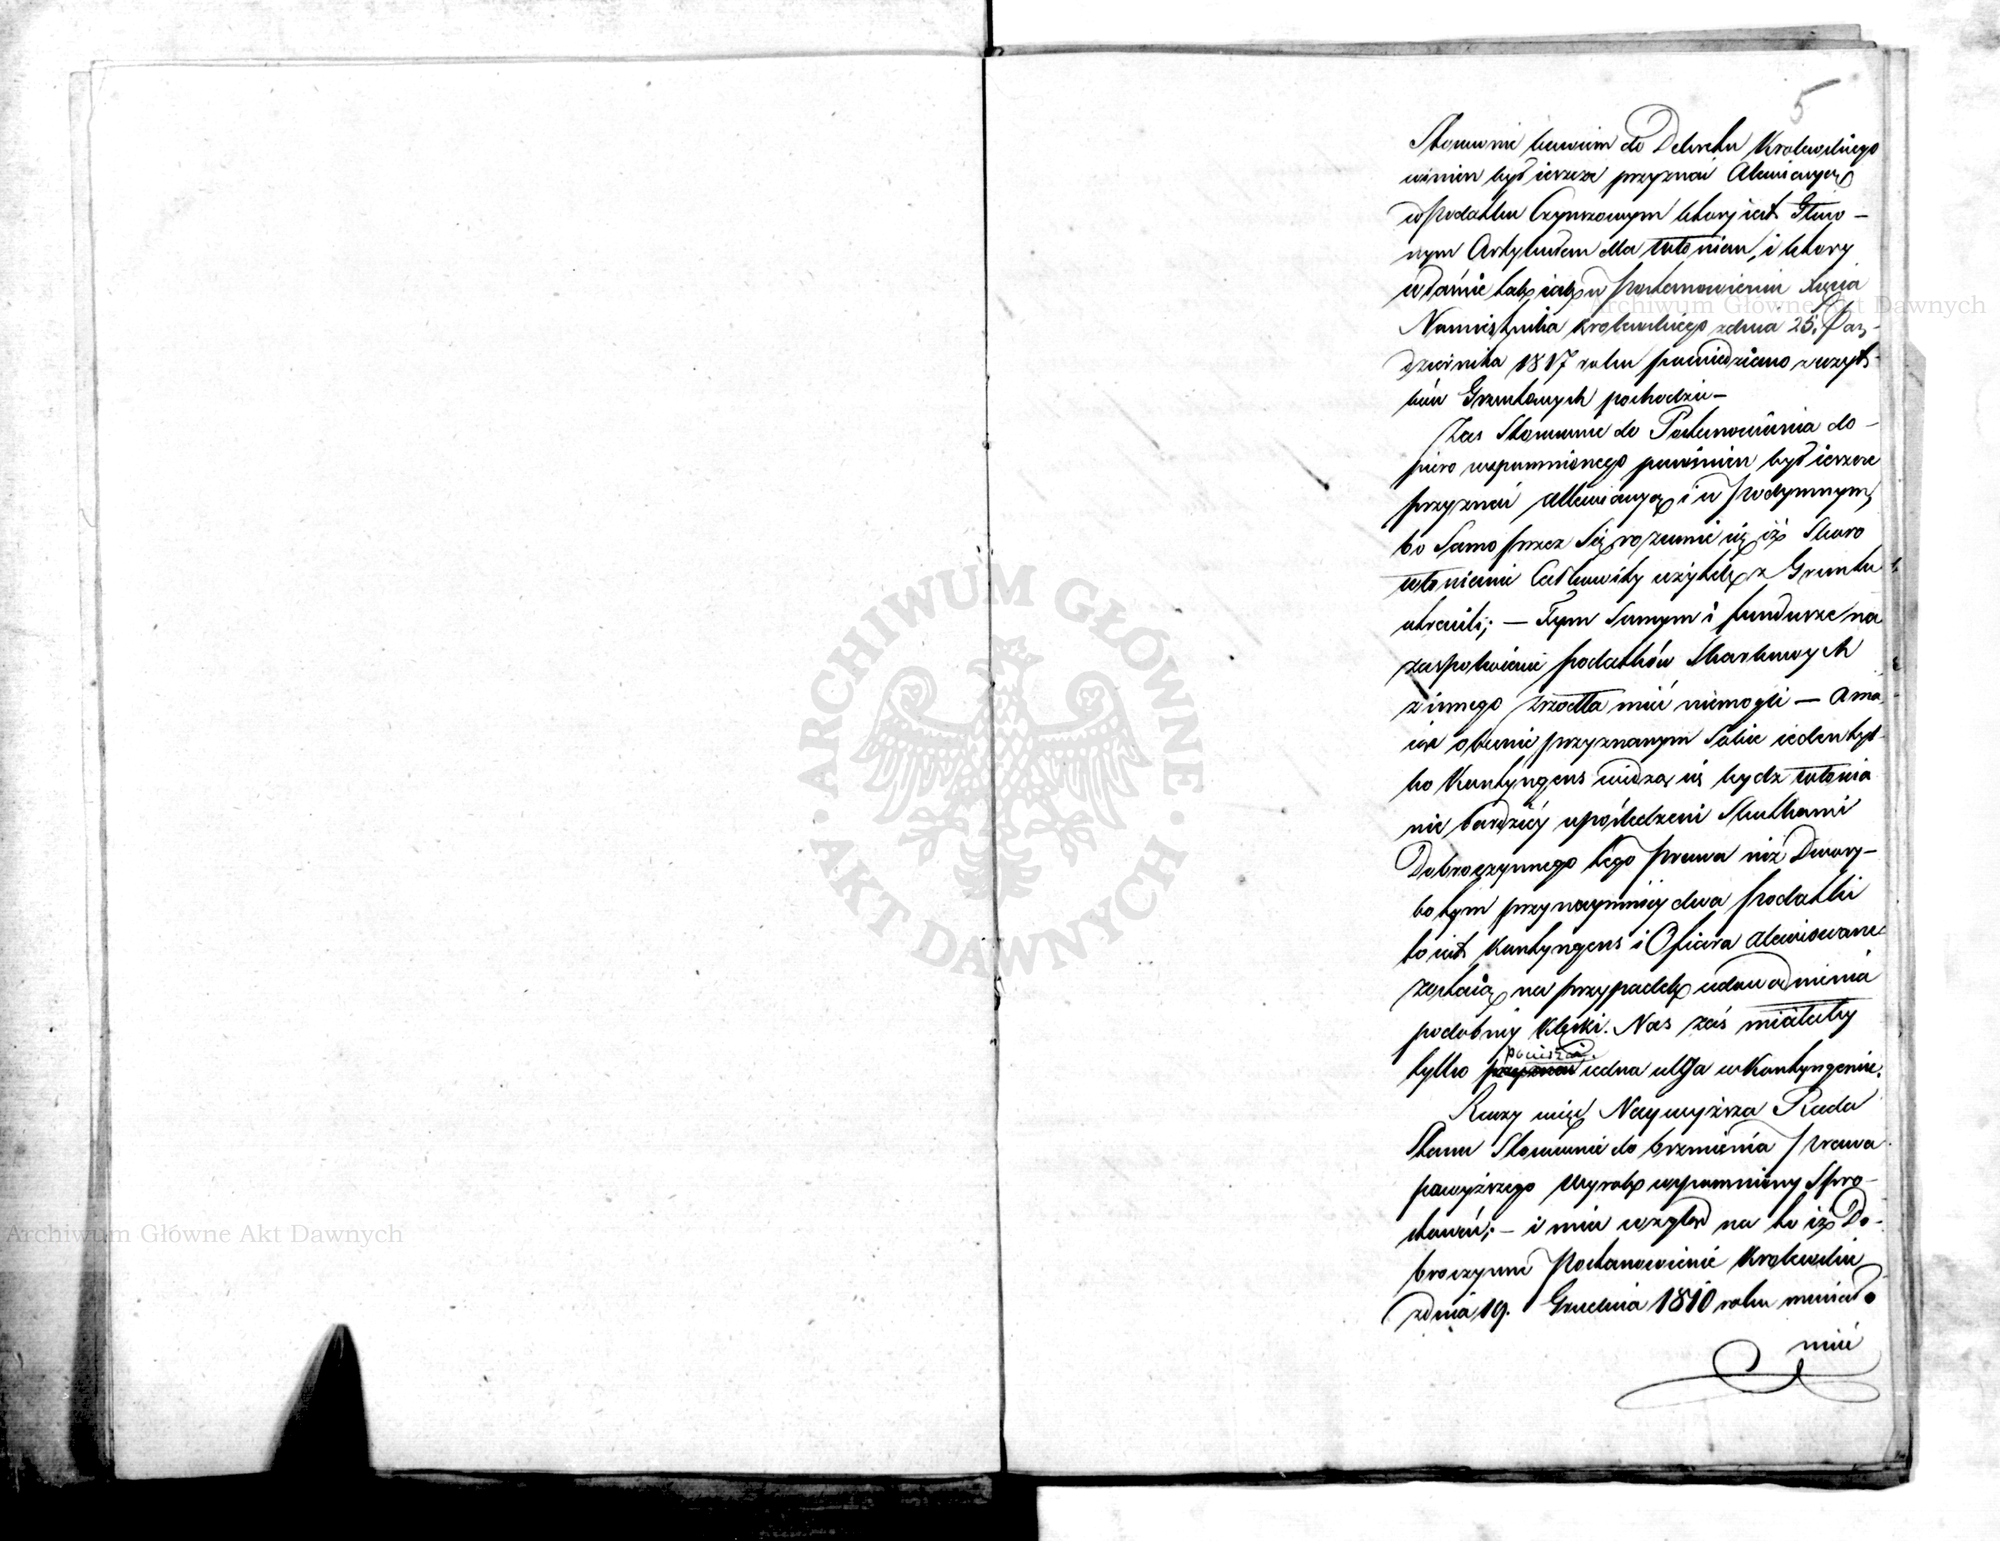 5
Stosownie bowiem do Dekretu Krolewskiego
winien być ieszcze przyznać Alewiacyą
w Podatku Czynszowym ktory iest Głuw-
nym Artykułem dla włoscian, i ktory
własnie tak iak w Postanowieniu Xięcia
Namiestnika Krolewskiego z dnia 25. Paz-
dziernika 1817 roku powiedziano z uzyt-
ków Gruntowych pochodzi-
Zas Stosownie do Postanowienia do-
piero wspomnionego powinien być ieszcze
przyznać allewiacyą i w Podymnym,
bo Samo przez Się rozumie się iż Skoro
włoscianie Całkowity użytek z Gruntu
utracili; — Tym Samym i fundusze na
zaspokoienie podatków Skarbowych
z innego zrzodła mieć niemogli — a ma-
iąc obecnie przyznanym Sobie ieden tyl-
ko Kontyngens widzą się bydz włoscia
nie bardziey uposledzeni Skutkami
Dobroczynnego tego prawa niż Dwory-
bo tym przynaymniey dwa Podatki
to iest Kontyngens i Ofiara alewiowane
zostaią na przypadek udowodnienia
podobney klęski. Nas zaś miałaby
pocieszać
tylko przyznać iedna ulga w Kontyngensie.
Raczy więc Naywyższa Rada
Stanu Stosownie do brzmienia Prawa
powyższego Wyrok wspomniony Spro-
stować; — i mieć wzgląd na to iż Do-
broczynne Postanowienie Krolewskie
z dnia 19. Grudnia 1810 roku musiało
mieć
Archiwum Główne Akt Dawnych
Archiwum Główne Akt Dawnych
ARCHIWUM GŁÓWNE · AKT DAWNYCH ·